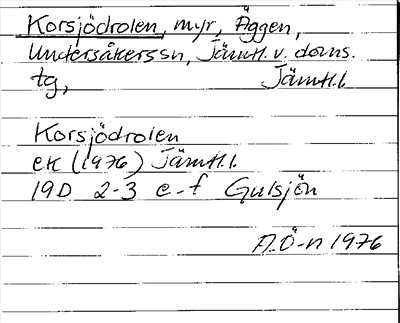 Korsjödrolen, myr, Äggen,
Undersåkerssn, Jämtl. v. doms.
tg, Jämtl.l.
Korsjödrolen
ek (1976) Jämtl.l.
19D 2-3 e-f Gulsjön
A.Ö-n 1976